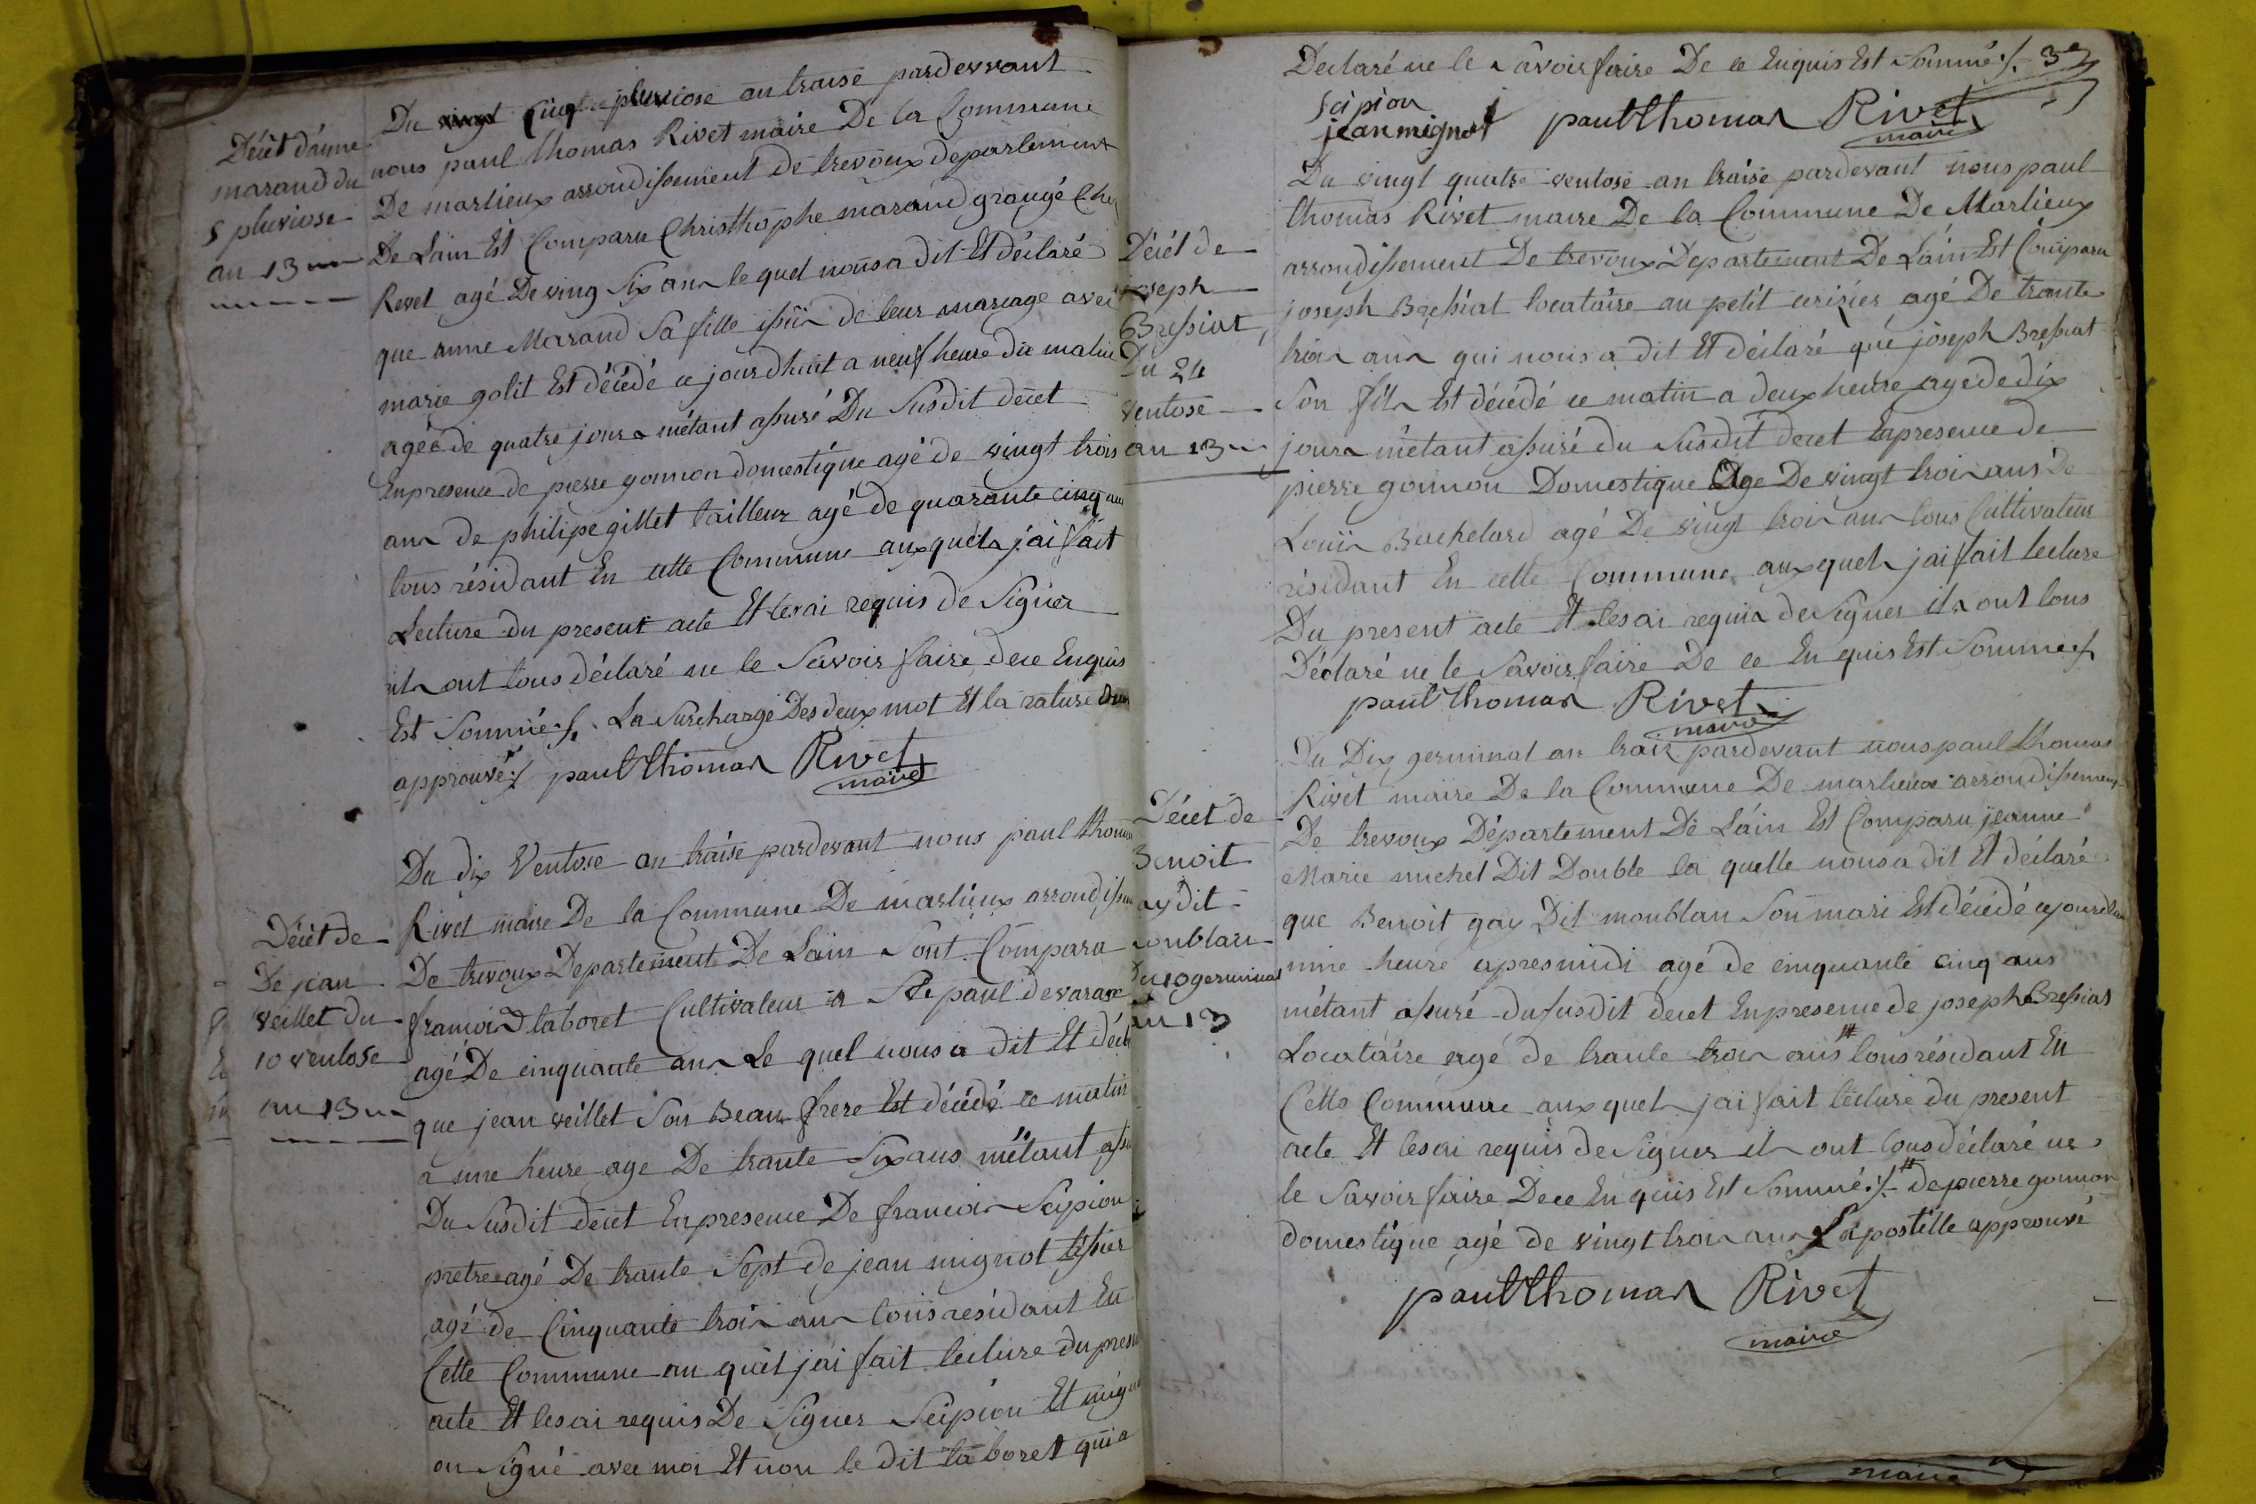 Décèt d'anne
marand du
5 pluviose
an 13
Du vingt Cinq pluviose an traise pardevvant
nous paul thomas Rivet maire De la Commune
De marlieux arrondissement de trevoux departement
De Lain Est Comparu Christhophe marand grangé Chez
Revel agé De ving Six ans le quel nous a dit Et déclaré
que anne Marand Sa fille issüe de leur mariage avec
marie golit Est décédé ce jourdhuit a neuf heure du matin
agéé de quatre jours métant assuré Du Susdit decet
En presence de pierre gonnon domestique agé de vingt trois
ans de philipe gillet tailleur agé de quarante cinq ans
tous résidant En cette Commune auxquels j'ai fait
Lecture du present acte Et les ai requis de Signer
ils ont tous déclaré ne le Savoir faire de ce Enquis
Est Sommé ./. La Surcharge Des deux mot Et la rature
approuvé ./. paul thomas Rivet
maire
Décèt de
De jean
veillet du
10 ventose
an 13
Du dix Ventose an traise pardevant nous paul thomas
Rivet maire De la Commune De marlieux arrondissem
De trevoux Departement De Lain Sont Comparu
francois laboret Cultivateur a St paul de varax
agé De cinquante ans Le quel nous a dit Et décla
que jean veillet Son Beau frere Est décédé ce matin
a une heure age De trante Six ans métant assu
Du Susdit decet En presence De francois Scipion
pretre agé De trante Sept de jean mignot tissier
agé de Cinquante trois ans tous residant En
Cette Commune au quel jai fait lecture du prese
acte Et les ai requis De Signer Scipion Et mign
on Signé avec moi Et non le dit laboret qui a
Declaré ne le Savoir faire De ce Enquis Est Sommé ./. 3
Scipion
jean mignot paul thomas Rivet
maire
Décèt de
joseph
Bressiat
Du 24
ventose
an 13
Du vingt quatre ventose an traise pardevant nous paul
thomas Rivet maire De la Commune De Marlieux
arrondissement De trevoux Departement De Lain Est Comparu
joseph Bressiat locataire au petit cerisier agé De trante
trois ans qui nous a dit Et déclaré que joseph Bressiat
Son fils Est décédé ce matin a deux heure agé de dix
jours métant assuré du Susdit decet En presence de
pierre gonnon Domestique Age De vingt trois ans De
Louis Bachelard agé De vingt trois ans tous Cultivateur
résidant En cette Commune auxquels jai fait lecture
Du present acte Et les ai requis de Signer ils ont tous
Déclaré ne le Savoir faire De ce En quis Est Sommé ./.
paul thomas Rivet
maire
Décèt de
Benoit
gay dit
monblan
Du 10 germinal
an 13
Du Dix germinal an traiz pardevant nous paul thomas
Rivet maire De la Commune De marlieux arrondissement
De trevoux Département De Lain Est Comparu jeanne
Marie michel Dit Double la quelle nous a dit Et déclaré
que Benoit gay Dit monblan Son mari Est décédé ce jourdhui
a une heure apres midi agé de cinquante cinq ans
métant assuré du susdit decet En presence de joseph Bressiat
Locataire agé de trante trois ans # tous résidant En
Cette Commune auxquels jai fait lecture du present
acte Et les ai requis de Signer ils ont tous déclaré ne
le Savoir faire De ce En quis Est Sommé ./. # de pierre gonnon
domestique agé de vingt trois ans L'apostille approuvé
paul thomas Rivet
maire
maire